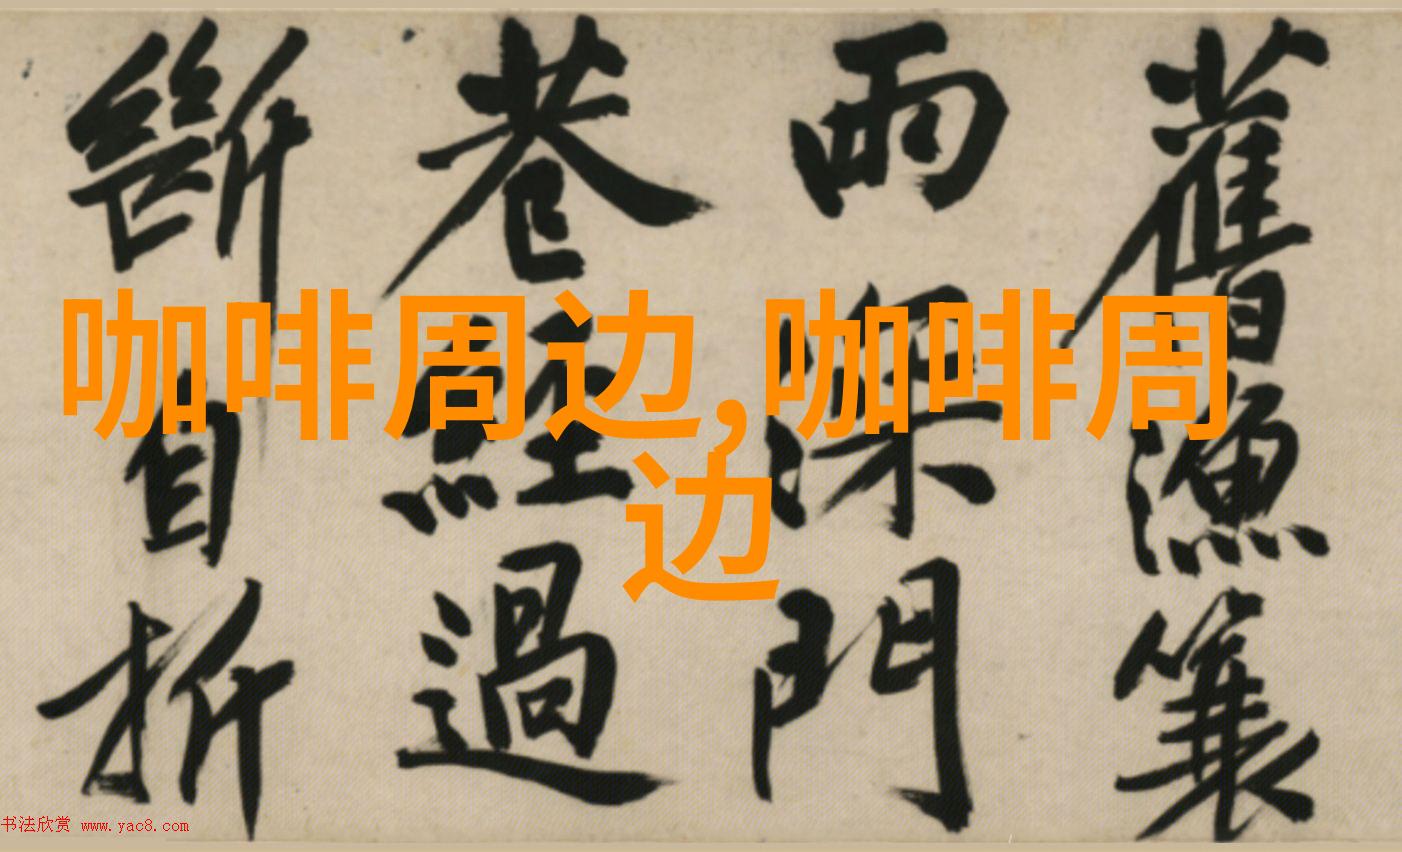 咖啡周边,咖啡周
边
舊漁簑
雨深門
巷經過
斷自折
书法欣赏 www.yac8.com